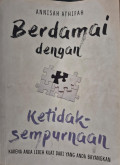 ANNISAH ATHIFAH
Berdamai
dengan
Ketidak-
sempurnaan
KARENA ANDA LEBIH KUAT DARI YANG ANDA BAYANGKAN